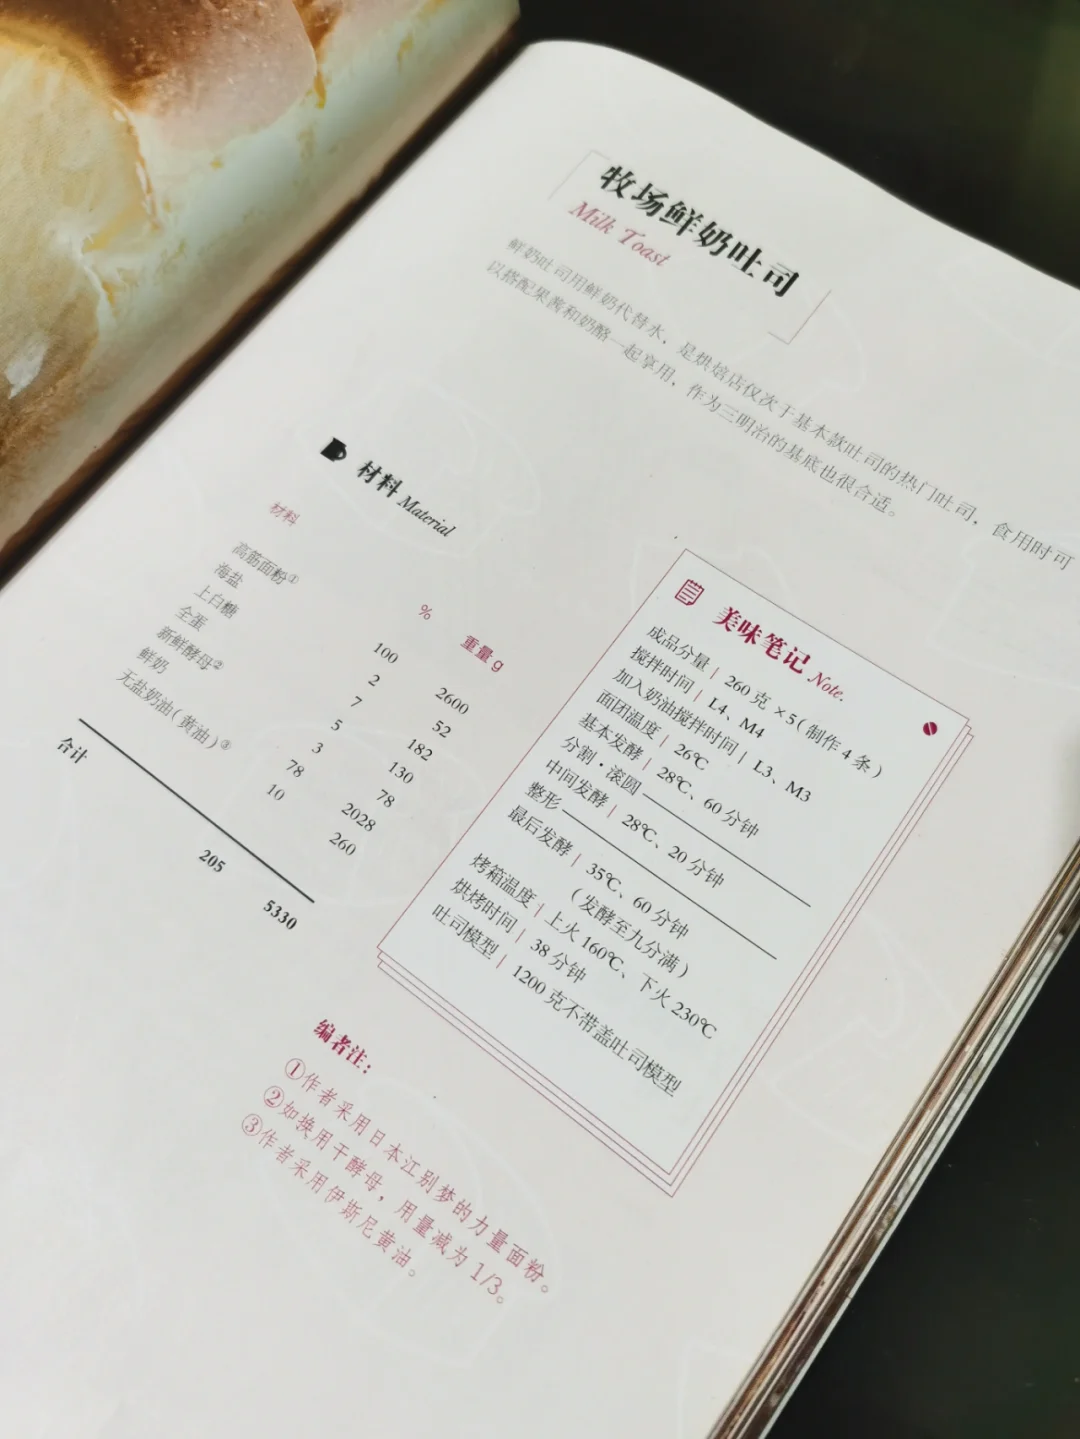 牧场鲜奶吐司
Milk Toast
鲜奶吐司用鲜奶代替水，是烘焙店仅次于基本款吐司的热门吐司，食用时可
以搭配果酱和奶酪一起享用，作为三明治的基底也很合适。
材料 Material
材料 % 重量 g
高筋面粉① 100 2600
海盐 2 52
上白糖 7 182
全蛋 5 130
新鲜酵母② 3 78
鲜奶 78 2028
无盐奶油（黄油）③ 10 260
合计 205 5330
美味笔记 Note.
成品分量 | 260 克 ×5（制作 4 条）
搅拌时间 | L4、M4
加入奶油搅拌时间 | L3、M3
面团温度 | 26℃
基本发酵 | 28℃、60 分钟
分割·滚圆
中间发酵 | 28℃、20 分钟
整形
最后发酵 | 35℃、60 分钟
（发酵至九分满）
烤箱温度 | 上火 160℃、下火 230℃
烘烤时间 | 38 分钟
吐司模型 | 1200 克不带盖吐司模型
编者注：
①作者采用日本江别梦的力量面粉。
②如换用干酵母，用量减为 1/3。
③作者采用伊斯尼黄油。